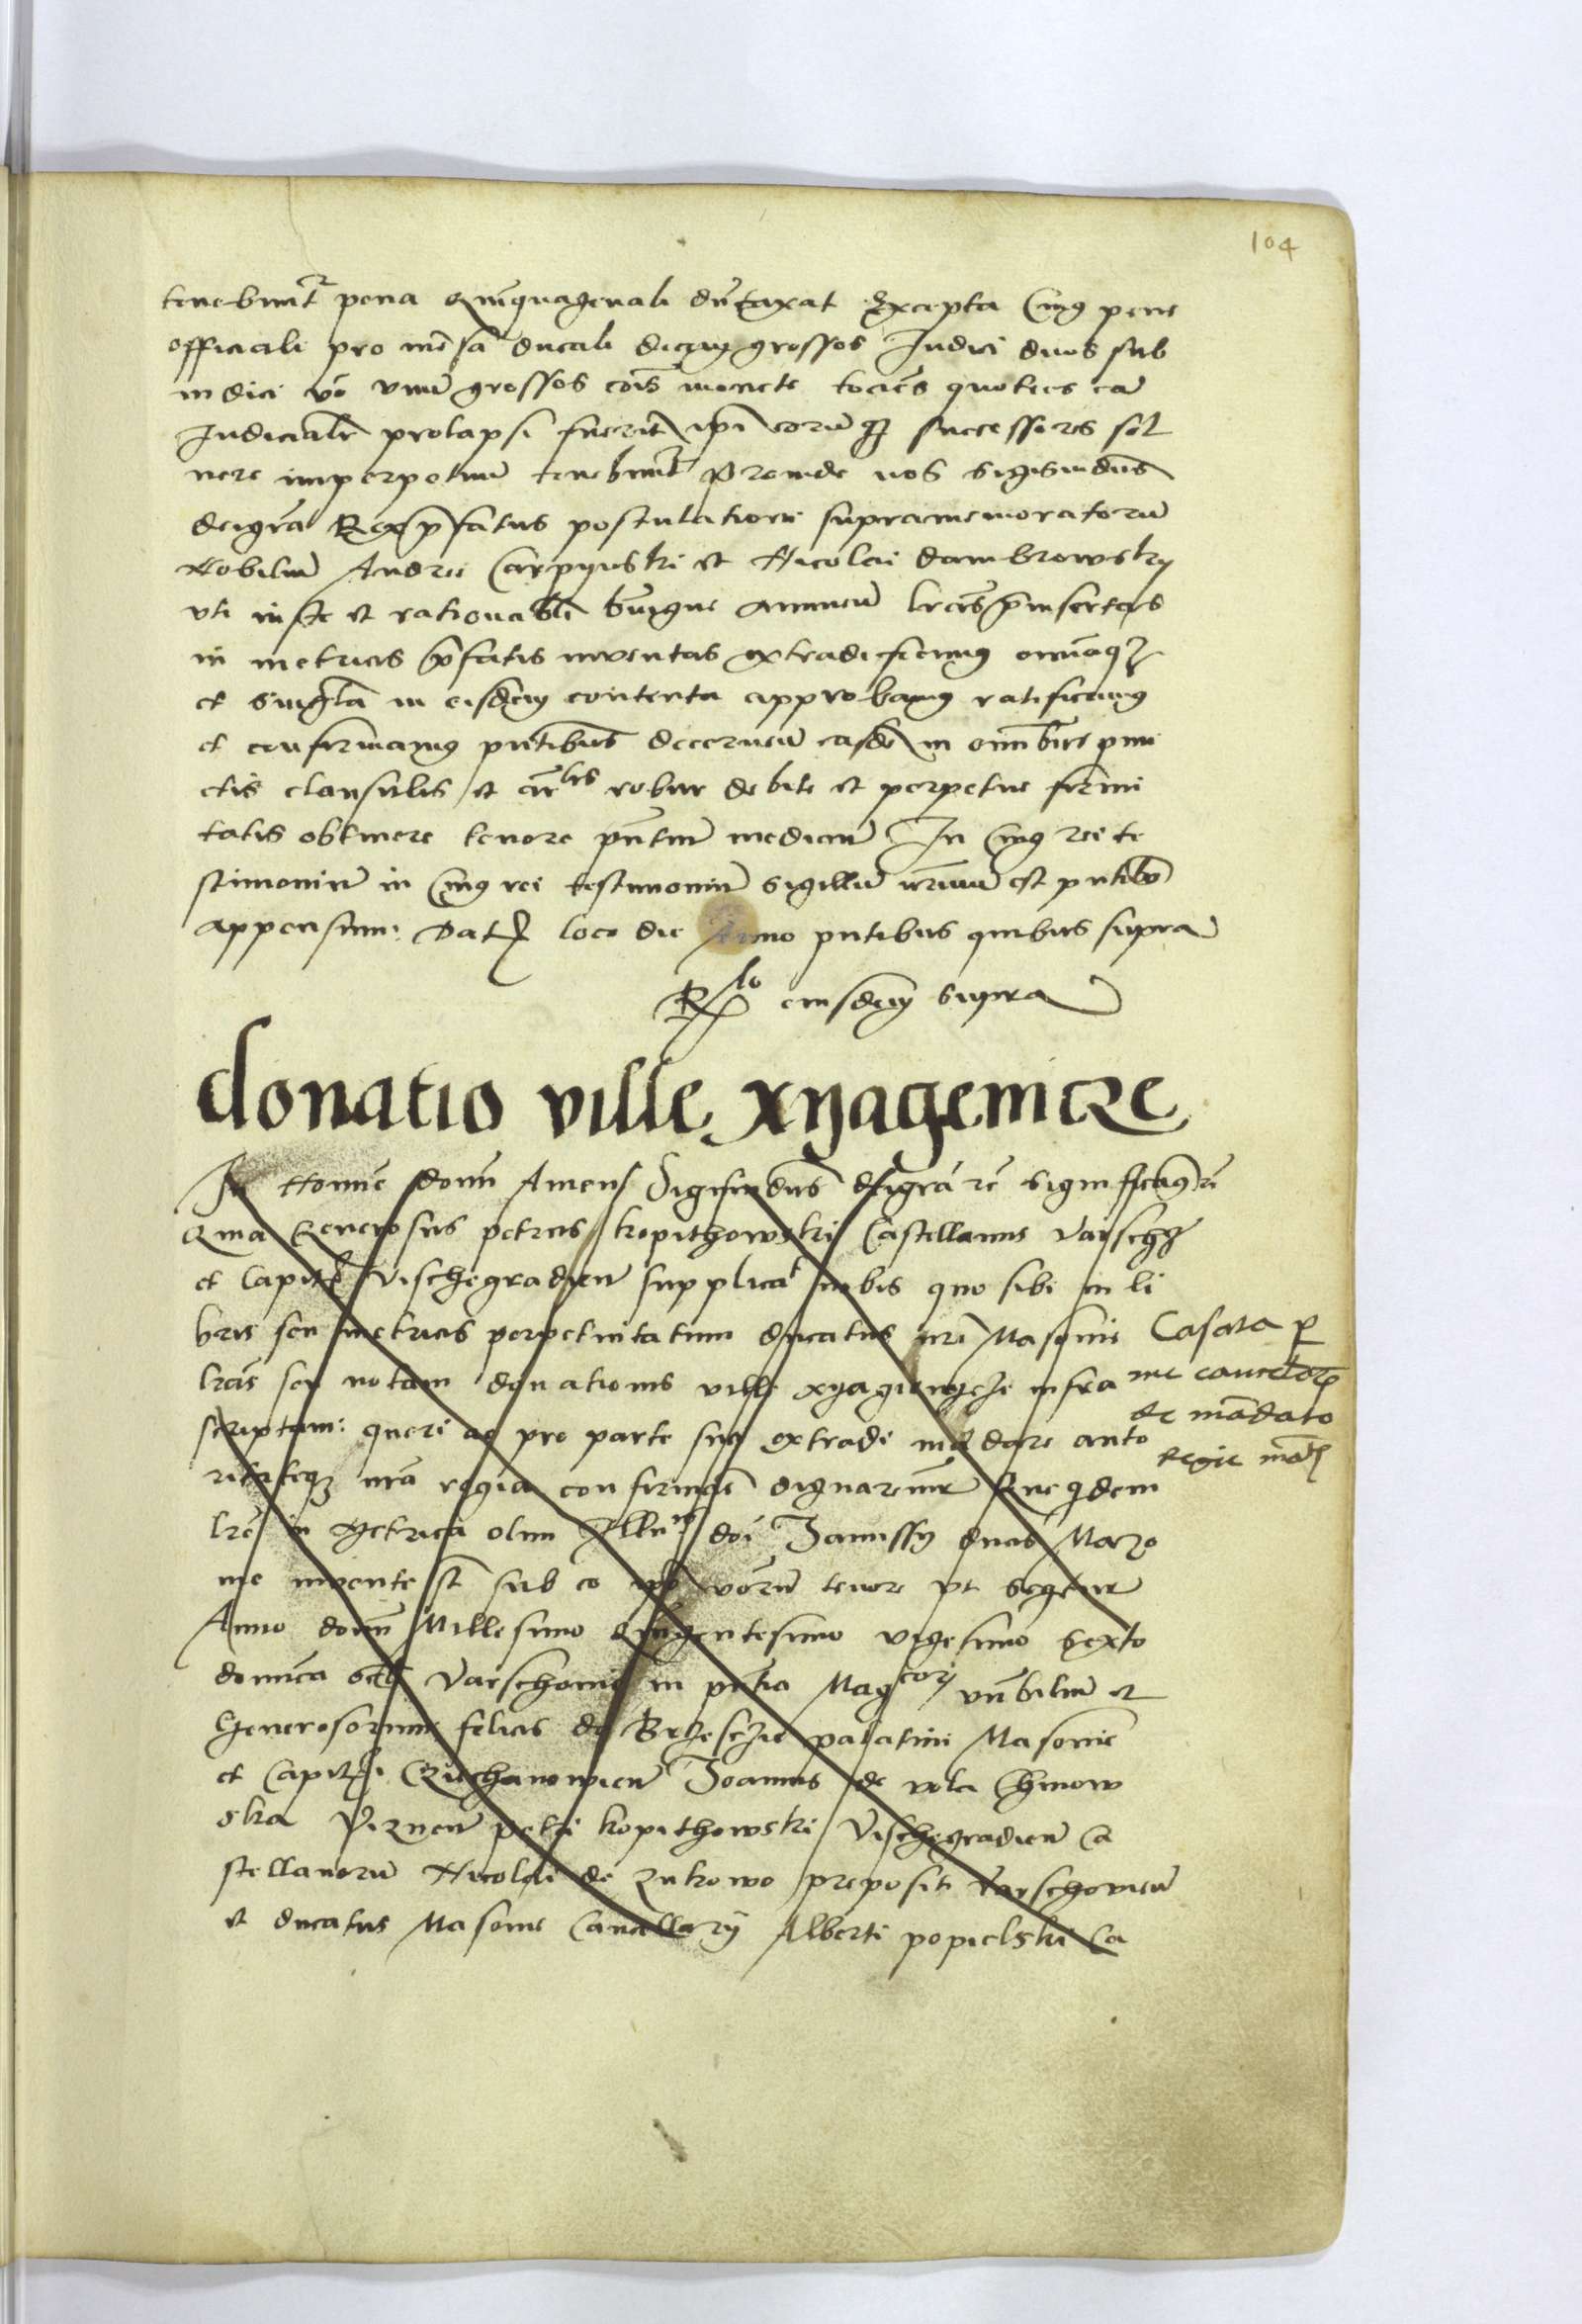 104
tenebunt͂ pena Quīquagenali dūtaxat Excepta Cuiꝰ pene
officiali pro mēsa ducali decem grossos Iudici duos sub
iudici v̄o vnū grossos cōis monete tociēs quoties eā
Iudicialr̄ prolapsi fuerīt ip̄i eorūqꝫ successores sol
uere imperpetuū tenebunt͂ Proinde nos Sigismūdus
deigrā Rex p̄fatus postulationi supramemoratorū
Nobiliū Andree Carpynski et Nicolai dambrowsky
vti iuste et rationabili b̄nigne annuen̄ lrās p̄insertas
in metricis p̄fatis inuentas extradi fecimꝰ omīaqꝫ
et sing̃la in eisdem contenta approbamꝰ ratificamꝰ
et confirmamꝰ pn̄tibus decernen̄ easdē in omnibus pun
ctis clausulis et ar̄lis robur debite et perpetue firmi
tatis obtinere tenore pn̄tiū median̄ In Cuiꝰ rei te
stimoniū in Cuiꝰ rei testimoniū sigillū nr̄um est pn̄tibꝰ
appensum: Dat͂ loco die Anno pn̄tibus quibus supra
R͞lo eiusdem supra
donatio ville xyagenicze
In Nomīe domī Amen Sigismūdus deigrā rē significamꝰ
Quia Generosus petrus kopithowski Castellanus Varsch
et Capit͂ Vischegradien̄ supplicat nobis quo sibi in li
bris seu metricis perpetuitatum ducatus nr̄i Masouie
lrās seu notam donationis ville xyagienycze infra
scriptam: queri ac pro parte sua extradi mādare aucto
ritateqꝫ nr̄a regia confirmare dignaremur Que q̄dem
lrē in Metrica olim Illu doī Janussy ducis Mazo
uie inuente sūt sub eo verborū tenore vt seqūtur
Anno domī Millesimo Quīgentesimo vigesimo Sexto
domīca Varschouie in pn̄tia Magcorꝫ vn̄bilium et
Generosorum felicis de Brzesczie palatini Masouie
et Capit͂i Czechanowien̄ Joannis de vola Chinow
ska Viznen̄ petri kopithowski Vischegradien̄ Ca
stellanorū Nicolai de zukowo prepositi Varschouien̄
et ducatus Masouie Cancellarij Alberti popielski Ca
Casata p
me cancelər
de mādato
regie mat͂